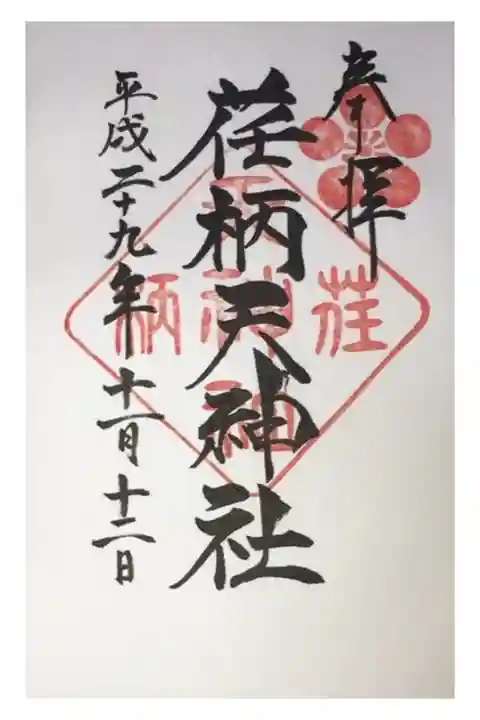 奉拝
荏柄天神社
平成二十九年十一月十二日
荏
柄
天
神
社